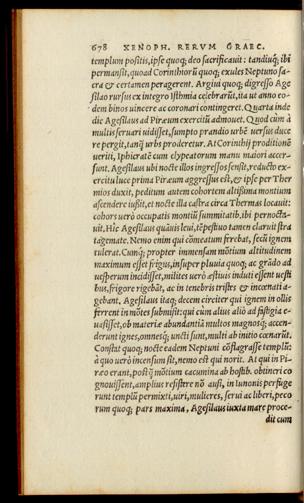 678 XENOPH. RERVM GRAEC.
templum positis, ipse quoq; deo sacrificauit: tandiuq; ibi
permansit, quoad Corinthiorũ quoq; exules Neptuno sa-
cra & certamen peragerent. Argiui quoq; digresso Age
silao rursus ex integro Isthmia celebrarũt, ita ut anno eo-
dem binos uincere ac coronari contingeret. Quarta inde
die Agesilaus ad Piræum exercitũ admouet. Quod cùm à
multis seruari uidisset, sumpto prandio urbẽ uersus duce
re pergit, tanq̃ urbs proderetur. At Corinthij proditionẽ
ueriti, Iphicratẽ cum clypeatorum manu maiori accersunt.
Agesilaus ubi nocte illos ingressos sensit, reducto ex-
ercitu luce prima Piræum aggressus est, & ipse per Ther
mios duxit, peditum autem cohortem altissima montium
ascendere iussit, et nocte illa castra circa Thermas locauit:
cohors uerò occupatis montiũ summitatib. ibi pernocta-
uit. Hîc Agesilaus quãuis leui, tẽpestiuo tamen claruit stra
tagemate. Nemo enim qui cõmeatum ferebat, secũ ignem
tulerat. Cumq; propter immensam mõtium altitudinem
maximum esset frigus, insuper pluuia quoq; ac grãdo ad
uesperum incidisset, milites uerò æstiuis induti essent uesti
bus, frigore rigebãt, ac in tenebris tristes & incœnati a-
gebant. Agesilaus itaq; decem circiter qui ignem in ollis
ferrent in mõtes submisit: qui cùm alius aliò ad fastigia e-
uasisset, ob materiæ abundantiã multos magnosq; accen-
derunt ignes, omnesq; uncti sunt, multi ab initio cœnarũt.
Constat quoq; nocte eadem Neptuni cõflagrasse templũ:
à quo uerò incensum sit, nemo est qui norit. At qui in Pi-
ræo erant, postq̃ mõtium cacumina ab hostib. obtineri co
gnouissent, amplius resistere nõ ausi, in Iunonis perfuge
runt templũ permixti, uiri, mulieres, serui ac liberi, peco
rum quoq; pars maxima, Agesilaus iuxta mare proce-
dit cum